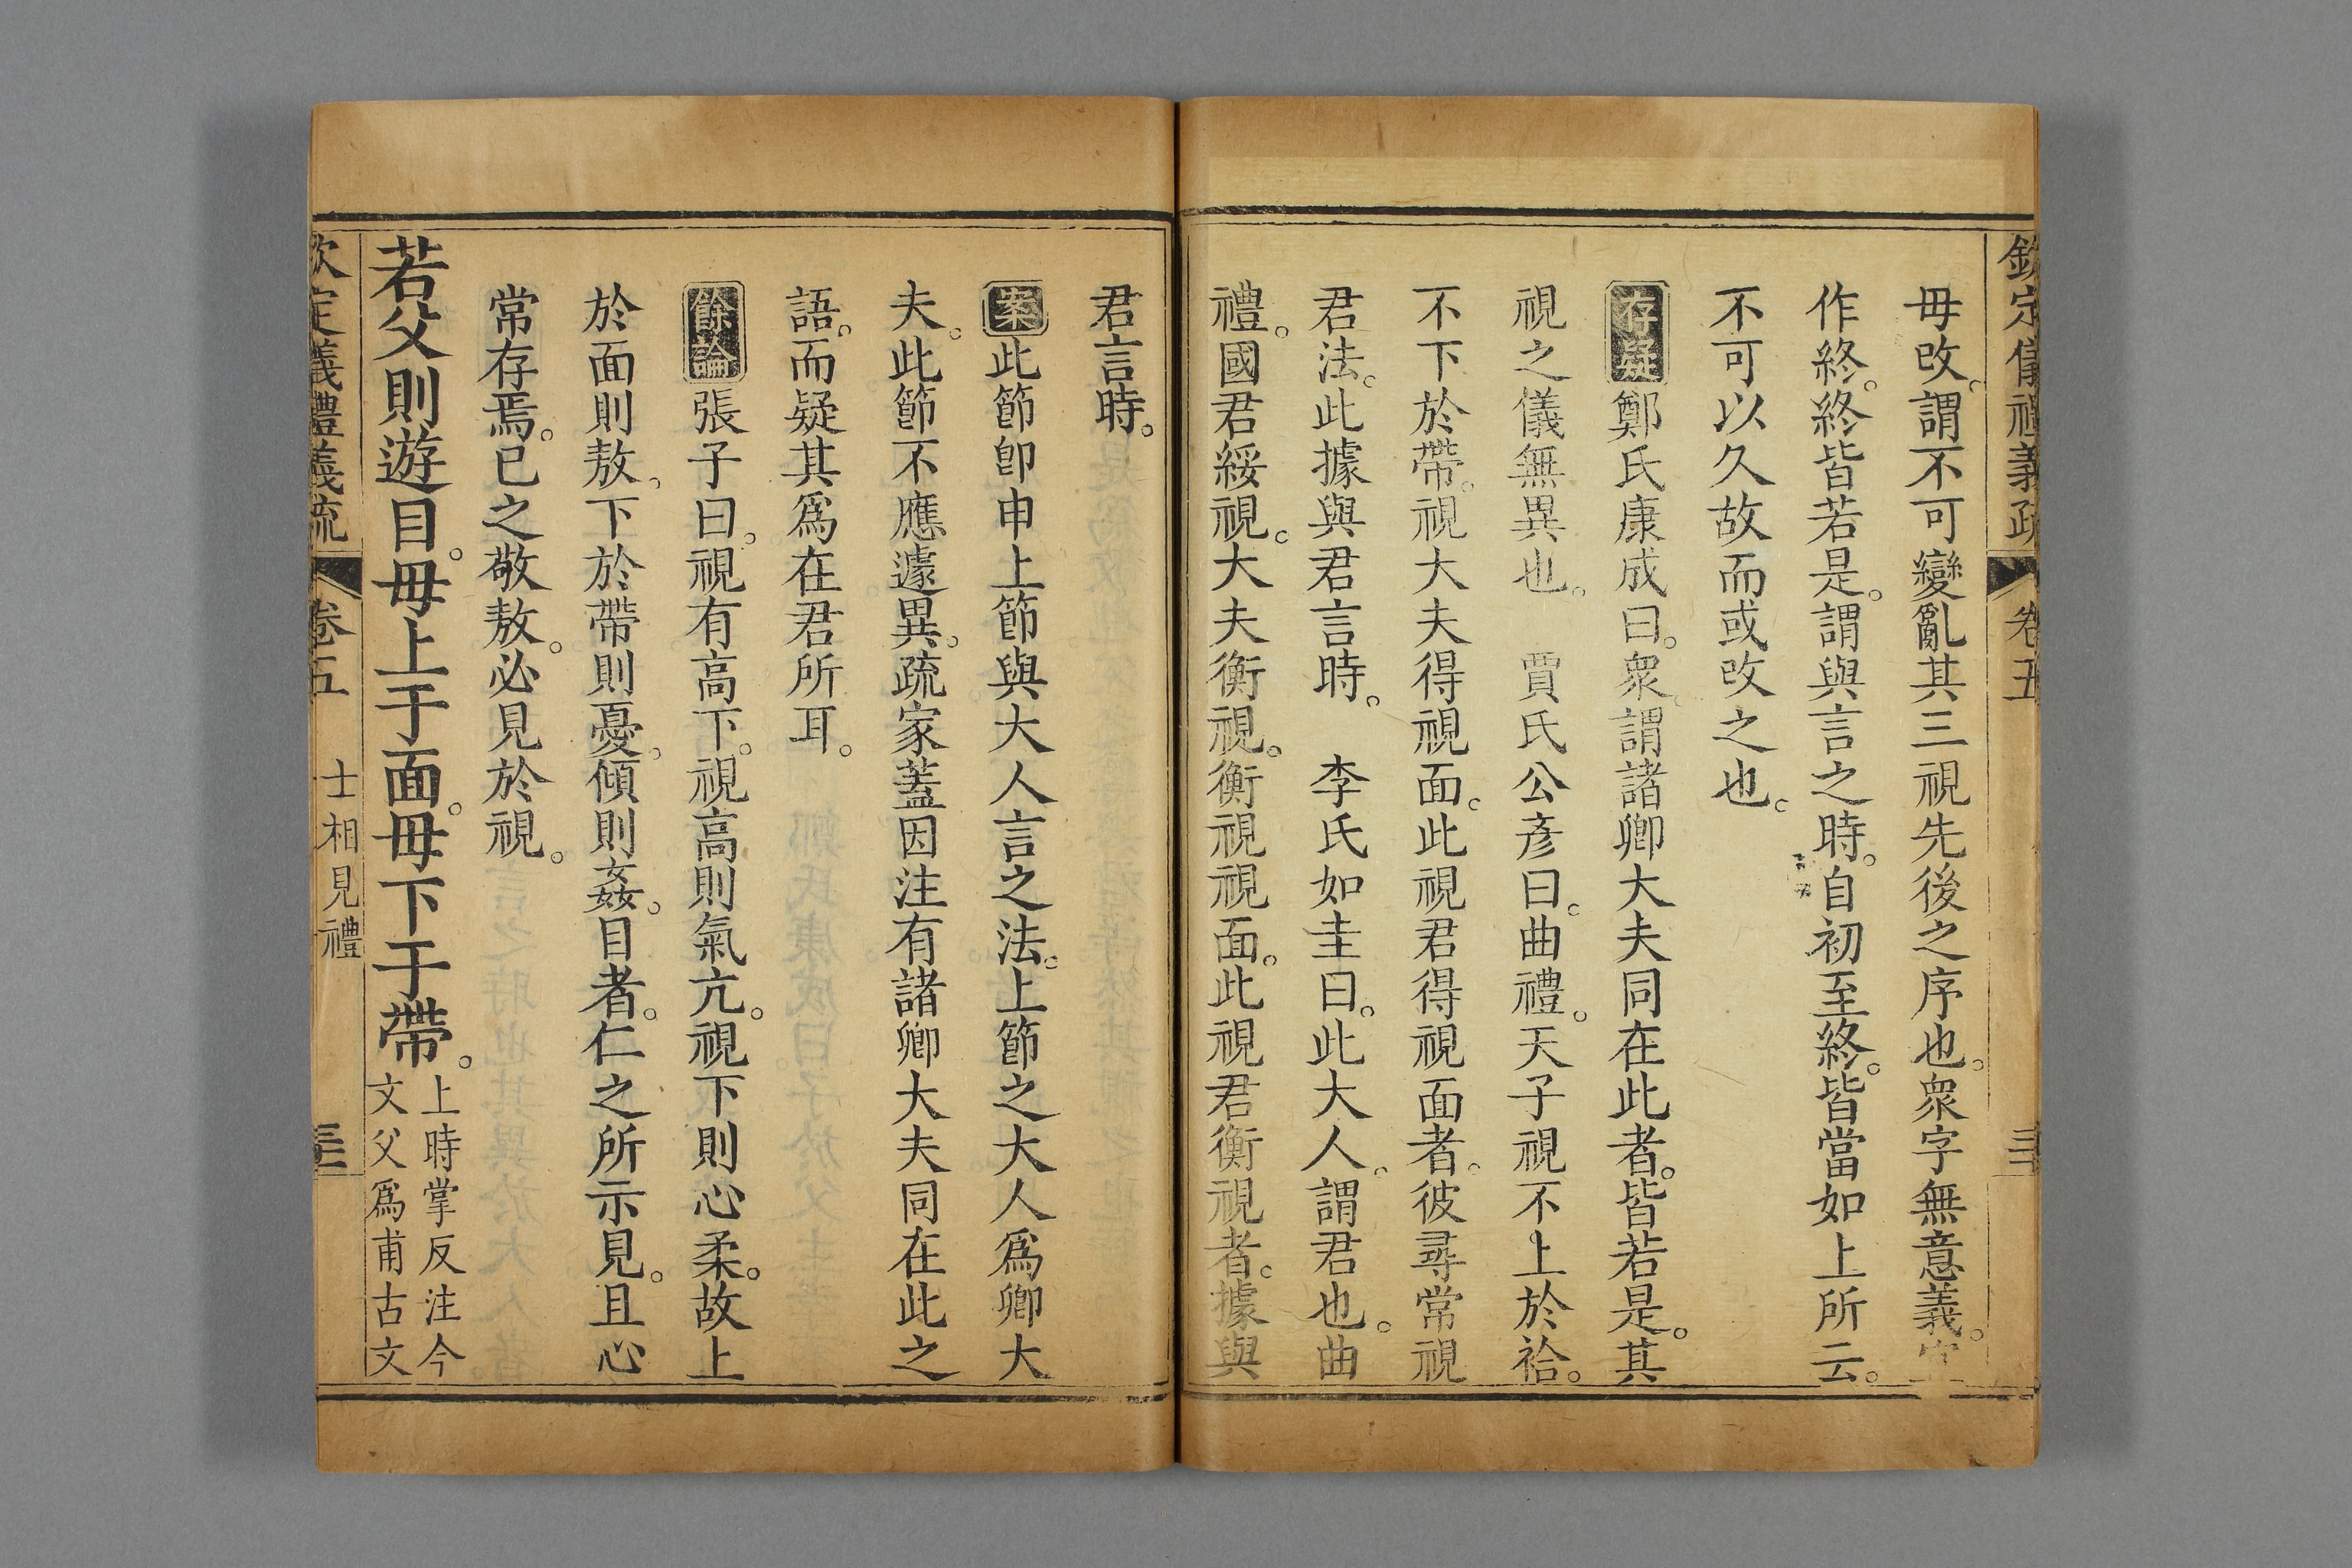 欽定儀禮義疏 卷五
毋改。謂不可變亂其三視先後之序也。衆字無意義。
作終。終皆若是。謂與言之時。自初至終。皆當如上所云。
不可以久故而或改之也。
存疑鄭氏康成曰。衆。謂諸卿大夫同在此者。皆若是。其
視之儀無異也。 賈氏公彥曰。曲禮。天子視不上於袷。
不下於帶。視大夫得視面。此視君得視面者。彼尋常視
君法。此據與君言時。 李氏如圭曰。此大人。謂君也。曲
禮。國君綏視。大夫衡視。衡視視面。此視君衡視者。據與
君言時。
案此節卽申上節與大人言之法。上節之大人爲卿大
夫。此節不應遽異。疏家蓋因注有諸卿大夫同在此之
語。而疑其爲在君所耳。
餘論張子曰。視有高下。視高則氣亢。視下則心柔。故上
於面則敖。下於帶則憂。傾則姦。目者。仁之所示見。且心
常存焉。已之敬敖。必見於視。
若父則遊目。毋上于面。毋下于帶。
上時掌反注今
文父爲甫古文
欽定義禮義疏 卷五 士相見禮